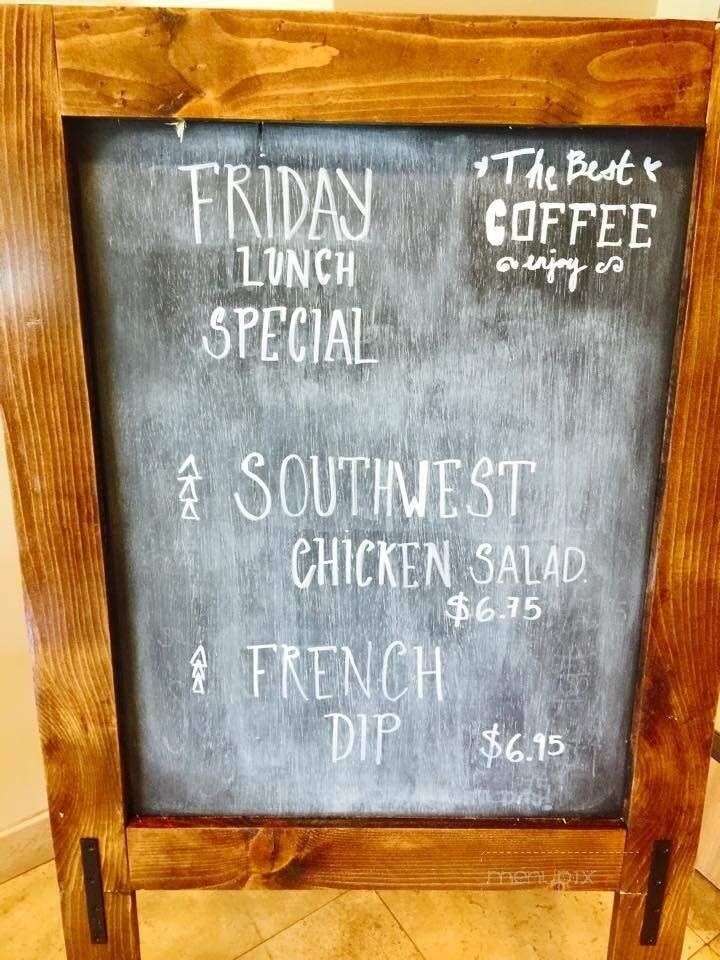 FRIDAY
LUNCH
SPECIAL
The Best
COFFEE
enjoy
SOUTHWEST
CHICKEN SALAD.
$6.75
FRENCH
DIP
$6.95
menupix